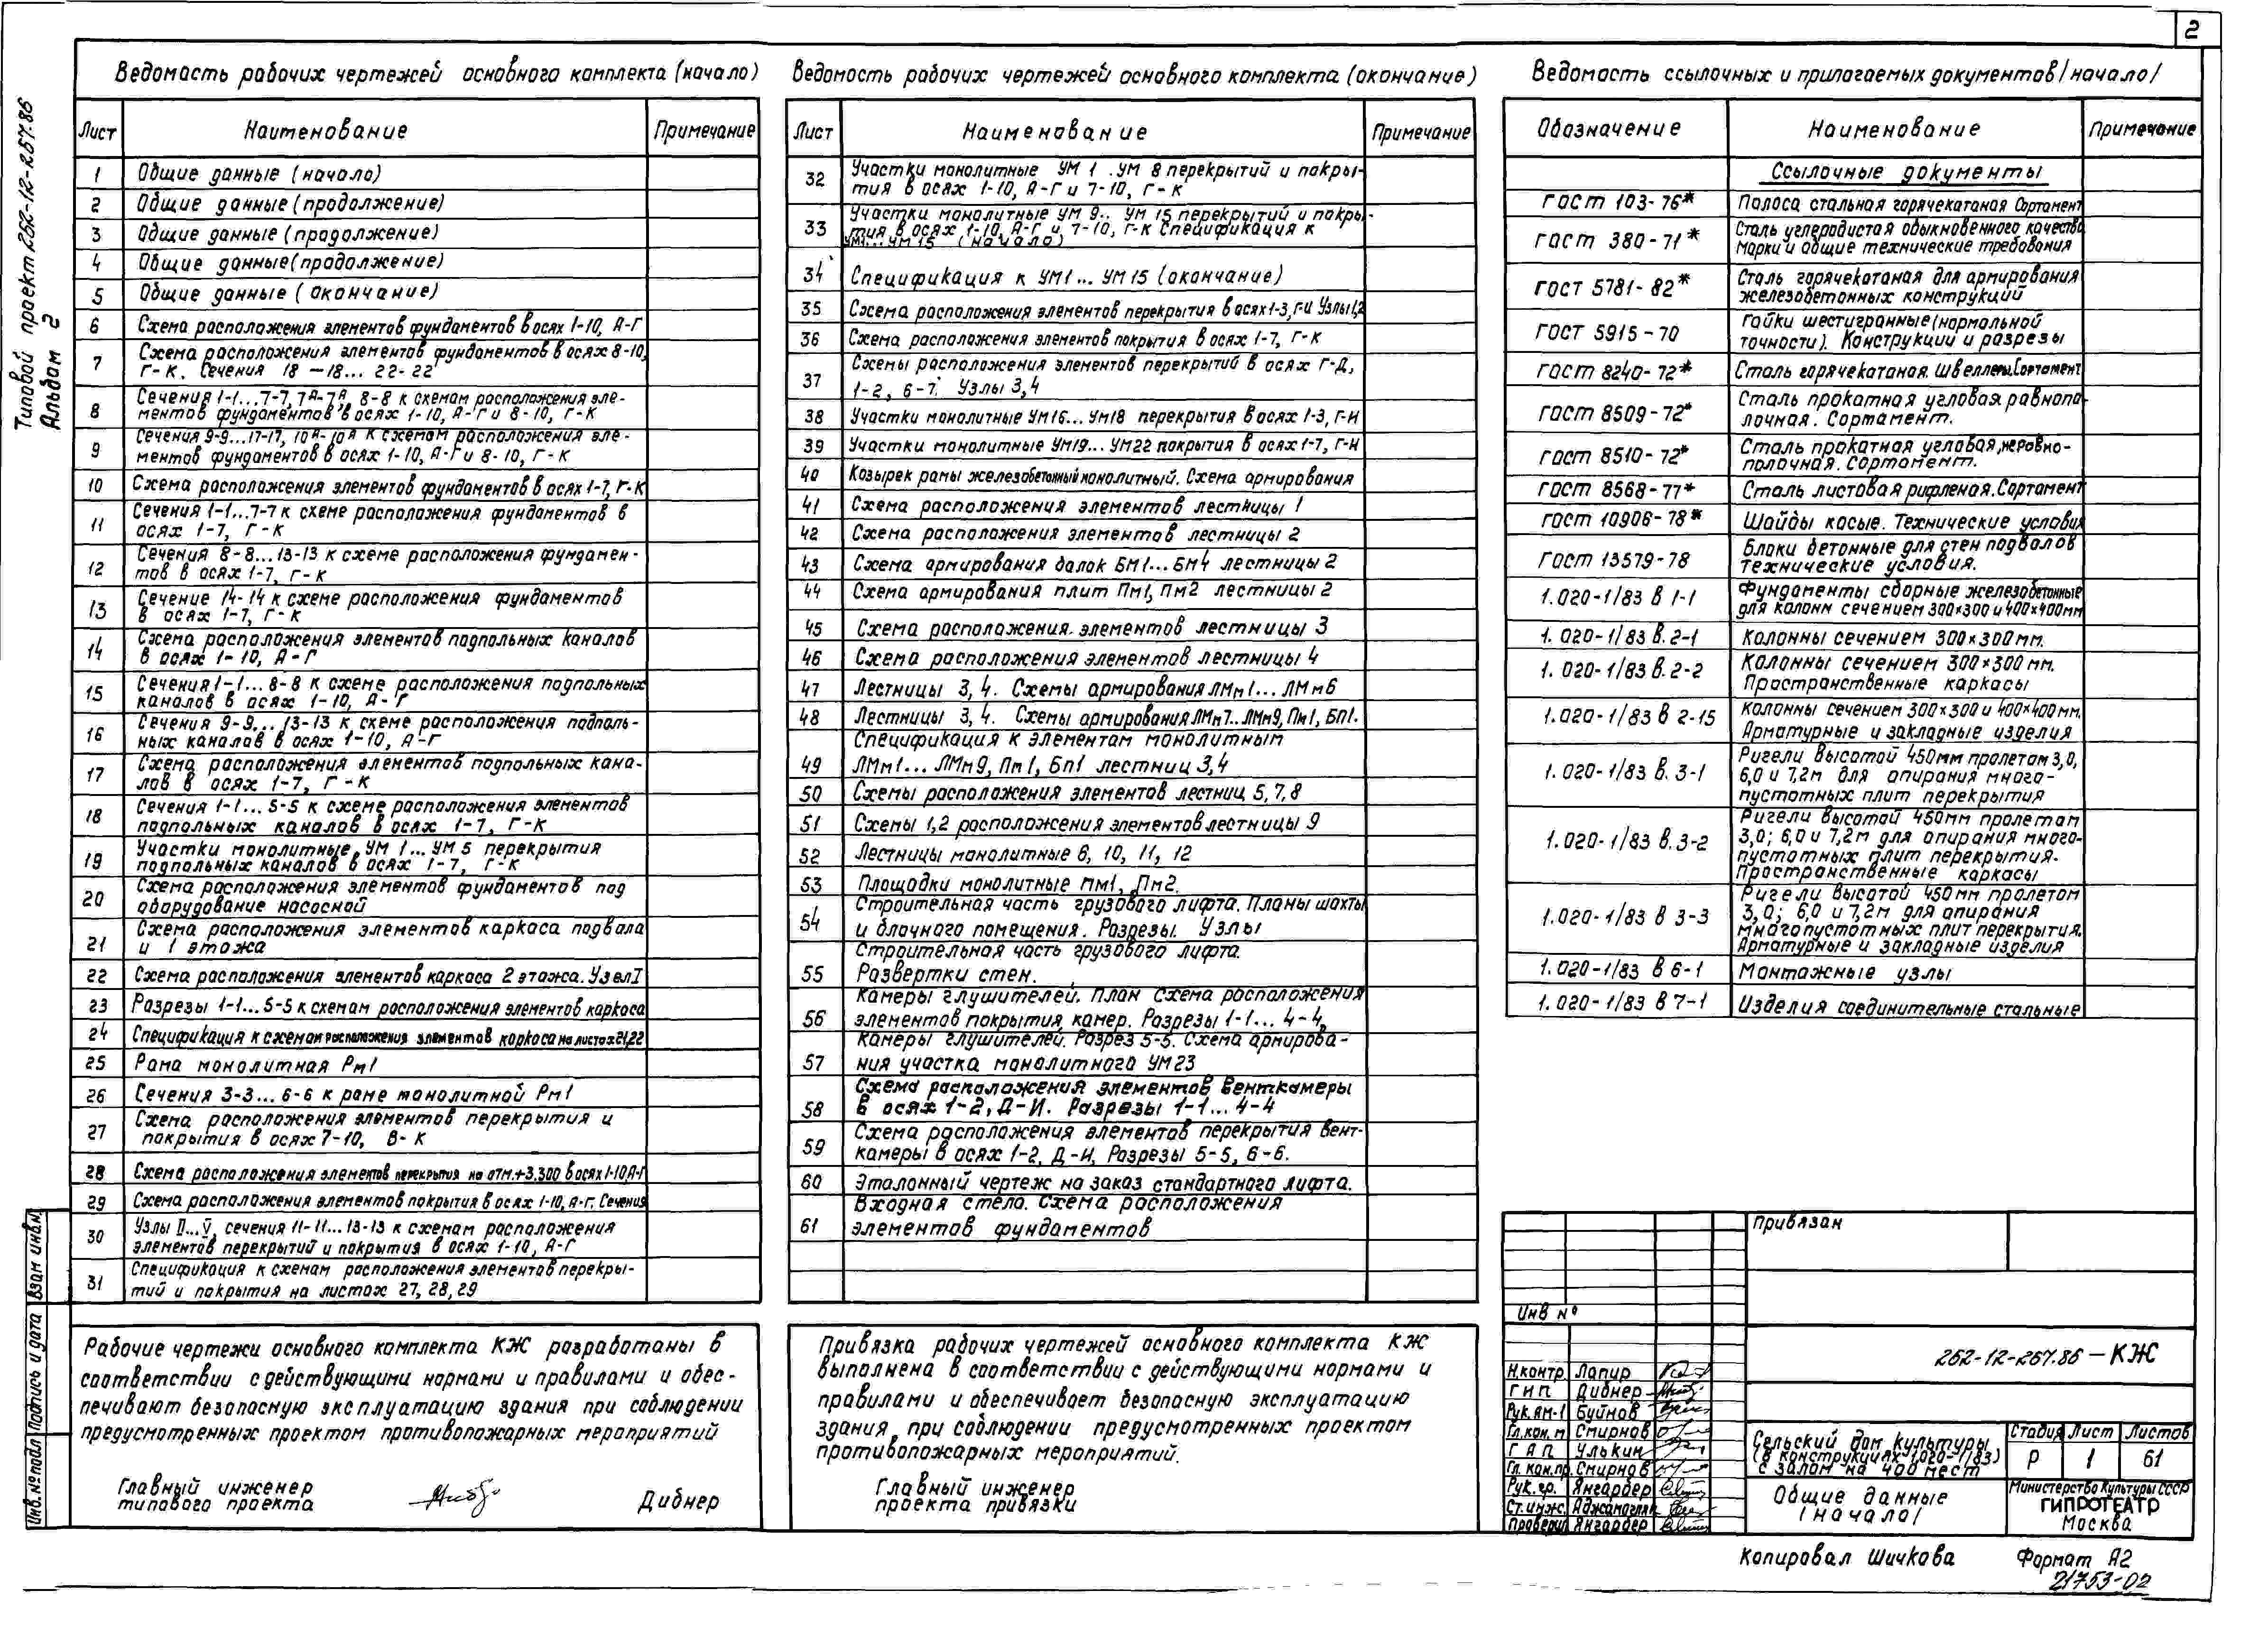 2
Типовой проект 262-12-267.86
Альбом 2
Ведомость рабочих чертежей основного комплекта (начало)
Лист Наименование Примечание
1 Общие данные (начало)
2 Общие данные (продолжение)
3 Общие данные (продолжение)
4 Общие данные (продолжение)
5 Общие данные (окончание)
6 Схема расположения элементов фундаментов в осях 1-10, А-Г
7 Схема расположения элементов фундаментов в осях 8-10,
Г-К. Сечения 18-18... 22-22
8 Сечения 1-1...7-7, 7А-7А, 8-8 к схемам расположения эле-
ментов фундаментов в осях 1-10, А-Г и 8-10, Г-К
9 Сечения 9-9...17-17, 10А-10А к схемам расположения эле-
ментов фундаментов в осях 1-10, А-Г и 8-10, Г-К
10 Схема расположения элементов фундаментов в осях 1-7, Г-К
11 Сечения 1-1...7-7 к схеме расположения фундаментов в
осях 1-7, Г-К
12 Сечения 8-8...13-13 к схеме расположения фундамен-
тов в осях 1-7, Г-К
13 Сечение 14-14 к схеме расположения фундаментов
в осях 1-7, Г-К
14 Схема расположения элементов подпольных каналов
в осях 1-10, А-Г
15 Сечения 1-1... 8-8 к схеме расположения подпольных
каналов в осях 1-10, А-Г
16 Сечения 9-9... 13-13 к схеме расположения подполь-
ных каналов в осях 1-10, А-Г
17 Схема расположения элементов подпольных кана-
лов в осях 1-7, Г-К
18 Сечения 1-1... 5-5 к схеме расположения элементов
подпольных каналов в осях 1-7, Г-К
19 Участки монолитные УМ 1... УМ 5 перекрытия
подпольных каналов в осях 1-7, Г-К
20 Схема расположения элементов фундаментов под
оборудование насосной
21 Схема расположения элементов каркаса подвала
и 1 этажа
22 Схема расположения элементов каркаса 2 этажа. Узел I
23 Разрезы 1-1... 5-5 к схемам расположения элементов каркаса
24 Спецификация к схемам расположения элементов каркаса на листах 21,22
25 Рама монолитная Рм1
26 Сечения 3-3... 6-6 к раме монолитной Рм1
27 Схема расположения элементов перекрытия и
покрытия в осях 7-10, В-К
28 Схема расположения элементов перекрытия на отм.+3.300 в осях 1-10,А-Г
29 Схема расположения элементов покрытия в осях 1-10, А-Г. Сечения
30 Узлы II...V, сечения 11-11... 13-13 к схемам расположения
элементов перекрытий и покрытия в осях 1-10, А-Г
31 Спецификация к схемам расположения элементов перекры-
тий и покрытия на листах 27, 28, 29
Ведомость рабочих чертежей основного комплекта (окончание)
Лист Наименование Примечание
32 Участки монолитные УМ 1 . УМ 8 перекрытий и покры-
тия в осях 1-10, А-Г и 7-10, Г-К
33 Участки монолитные УМ 9.. УМ 15 перекрытий и покры-
тия в осях 1-10, А-Г и 7-10, Г-К Спецификация к
УМ1... УМ15 (начало)
34 Спецификация к УМ1... УМ15 (окончание)
35 Схема расположения элементов перекрытия в осях 1-3, Г-И Узлы 1,2
36 Схема расположения элементов покрытия в осях 1-7, Г-К
37 Схемы расположения элементов перекрытий в осях Г-Д,
1-2, 6-7. Узлы 3,4
38 Участки монолитные УМ16... УМ18 перекрытия в осях 1-3, Г-И
39 Участки монолитные УМ19... УМ22 покрытия в осях 1-7, Г-И
40 Козырек рамы железобетонный монолитный. Схема армирования
41 Схема расположения элементов лестницы 1
42 Схема расположения элементов лестницы 2
43 Схема армирования балок БМ1... БМ4 лестницы 2
44 Схема армирования плит Пм1, Пм2 лестницы 2
45 Схема расположения элементов лестницы 3
46 Схема расположения элементов лестницы 4
47 Лестницы 3, 4. Схемы армирования ЛМм1... ЛМм6
48 Лестницы 3, 4. Схемы армирования ЛМм7.. ЛМм9, Пм1, Бп1.
49 Спецификация к элементам монолитным
ЛМм1... ЛМм9, Пм1, Бп1 лестниц 3,4
50 Схемы расположения элементов лестниц 5, 7, 8
51 Схемы 1,2 расположения элементов лестницы 9
52 Лестницы монолитные 6, 10, 11, 12
53 Площадки монолитные Пм1, Пм2.
54 Строительная часть грузового лифта. Планы шахты
и блочного помещения. Разрезы. Узлы
55 Строительная часть грузового лифта.
Развертки стен.
56 Камеры глушителей. План Схема расположения
элементов покрытия камер. Разрезы 1-1... 4-4,
57 Камеры глушителей. Разрез 5-5. Схема армирова-
ния участка монолитного УМ23
58 Схема расположения элементов венткамеры
в осях 1-2, Д-И. Разрезы 1-1... 4-4
59 Схема расположения элементов перекрытия вент-
камеры в осях 1-2, Д-И, Разрезы 5-5, 6-6.
60 Эталонный чертеж на заказ стандартного лифта.
61 Входная стела. Схема расположения
элементов фундаментов
Ведомость ссылочных и прилагаемых документов /начало/
Обозначение Наименование Примечание
Ссылочные документы
ГОСТ 103-76* Полоса стальная горячекатаная Сортамент
ГОСТ 380-71* Сталь углеродистая обыкновенного качества
Марки и общие технические требования
ГОСТ 5781-82* Сталь горячекатаная для армирования
железобетонных конструкций
ГОСТ 5915-70 Гайки шестигранные (нормальной
точности). Конструкции и разрезы
ГОСТ 8240-72* Сталь горячекатаная. Швеллеры. Сортамент
ГОСТ 8509-72* Сталь прокатная угловая равнопо-
лочная. Сортамент.
ГОСТ 8510-72* Сталь прокатная угловая, неравно-
полочная. Сортамент.
ГОСТ 8568-77* Сталь листовая рифленая. Сортамент
ГОСТ 10906-78* Шайбы косые. Технические условия
ГОСТ 13579-78 Блоки бетонные для стен подвалов
Технические условия.
1.020-1/83 в 1-1 Фундаменты сборные железобетонные
для колонн сечением 300×300 и 400×400мм
1. 020-1/83 в. 2-1 Колонны сечением 300×300мм.
1. 020-1/83 в. 2-2 Колонны сечением 300×300 мм.
Пространственные каркасы
1.020-1/83 в 2-15 Колонны сечением 300×300 и 400×400мм.
Арматурные и закладные изделия
1.020-1/83 в. 3-1 Ригели высотой 450мм пролетом 3,0,
6,0 и 7,2м для опирания много-
пустотных плит перекрытия
1.020-1/83 в. 3-2 Ригели высотой 450мм пролетом
3,0; 6,0 и 7,2м для опирания много-
пустотных плит перекрытия.
Пространственные каркасы
1.020-1/83 в 3-3 Ригели высотой 450мм пролетом
3,0; 6,0 и 7,2м для опирания
многопустотных плит перекрытия.
Арматурные и закладные изделия
1.020-1/83 в 6-1 Монтажные узлы
1.020-1/83 в 7-1 Изделия соединительные стальные
Рабочие чертежи основного комплекта КЖ разработаны в
соответствии с действующими нормами и правилами и обес-
печивают безопасную эксплуатацию здания при соблюдении
предусмотренных проектом противопожарных мероприятий
Главный инженер
типового проекта Дибнер
Привязка рабочих чертежей основного комплекта КЖ
выполнена в соответствии с действующими нормами и
правилами и обеспечивает безопасную эксплуатацию
здания, при соблюдении предусмотренных проектом
противопожарных мероприятий.
Главный инженер
проекта привязки
Привязан
Инв №
262-12-267.86 - КЖ
Н.контр Лапир
ГИП Дибнер
Рук. АМ-1 Буйнов
Гл.кон. м Смирнов
ГАП Улькин
Гл. кон.пр. Смирнов
Рук. гр. Янгарбер
Ст.инж.
Проверил Янгарбер
Сельский дом культуры
(в конструкциях 1.020-1/83)
с залом на 400 мест
Стадия Лист Листов
Р 1 61
Общие данные
/начало/
Министерство Культуры СССР
ГИПРОТЕАТР
Москва
Копировал Шичкова Формат А2
21753-02
Инв. № подл Подпись и дата Взам инв №